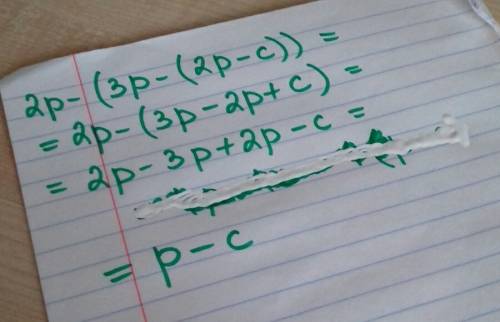 2p-(3p-(2p-c)) =
= 2p-(3p-2p+c) =
= 2p-3p+2p-c =
= p-c